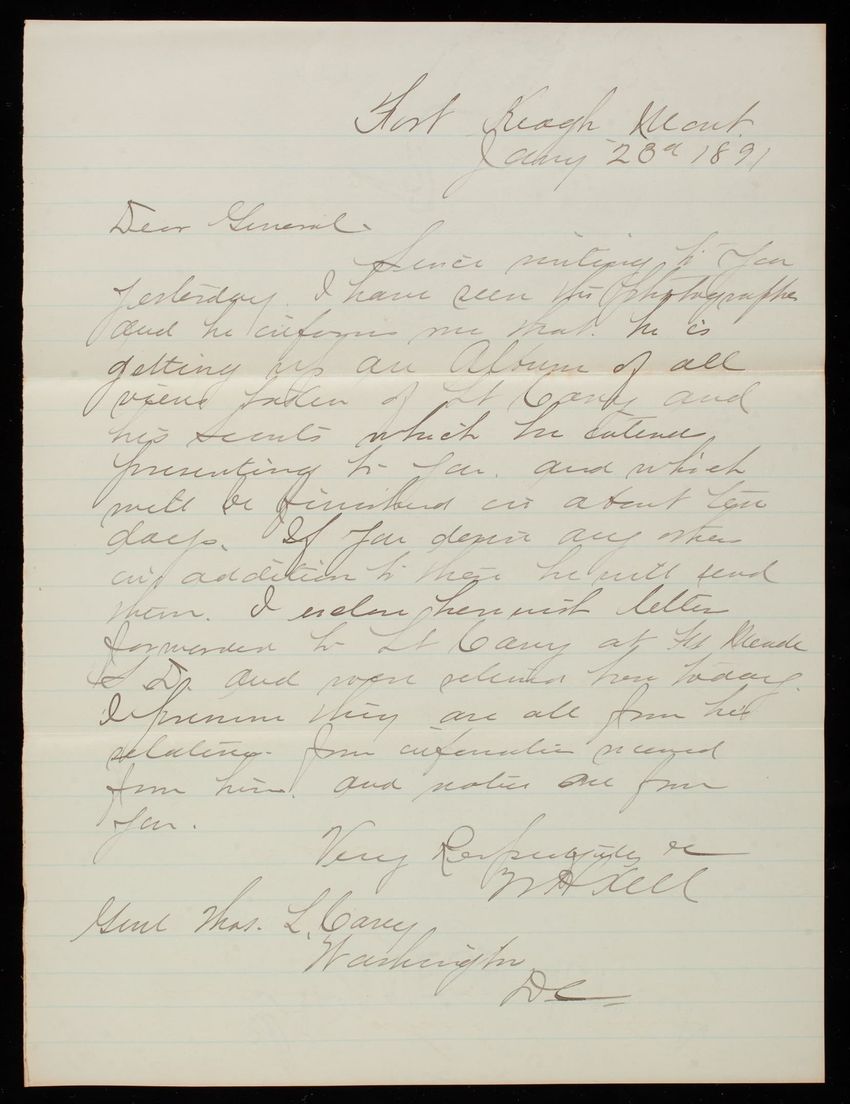 Fort Keogh Mont.
Jany 23d 1891
Dear General.
Since writing to you
yesterday. I have seen the photographer
and he informs me that. he is
getting up an Album of all
views taken of Lt Casey and
his scouts which he intends
presenting to you. and which
will be finished in about ten
days. If you desire any others
in addition to these he will send
them. I enclose herewith letters
forwarded to Lt Casey at Ft Meade
S D. and were returned here today.
I presume they are all from his
relatives. from information received
from him. and notice one from
you.
Very Respectfully &c
W H Kell
Genl Thos. L. Casey
Washington
DC